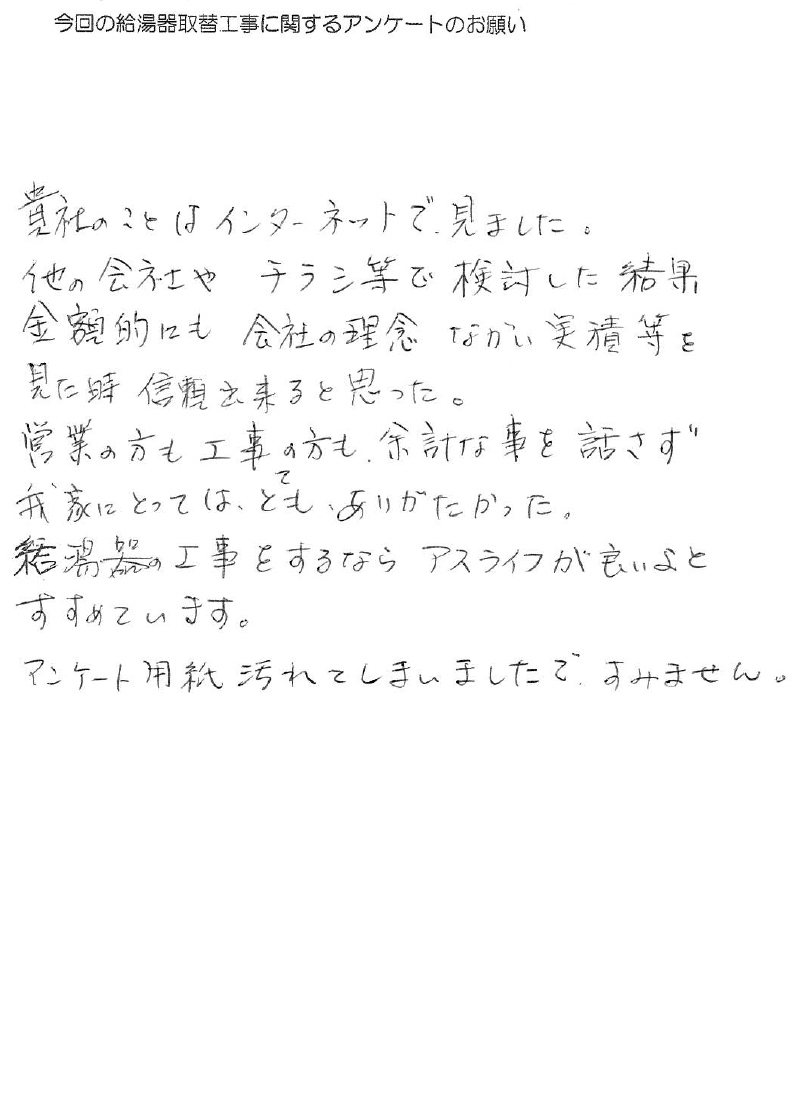 今回の給湯器取替工事に関するアンケートのお願い
貴社のことはインターネットで、見ました。
他の会社や チラシ等で 検討した 結果
金額的にも 会社の理念 ながい 実積等を
見た時 信頼出来ると思った。
営業の方も 工事の方も、余計な事を 話さず
我家にとっては、とても、ありがたかった。
給湯器の工事をするなら アスライフが良いよと
すすめています。
アンケート用紙 汚れてしまいましたで、すみません。